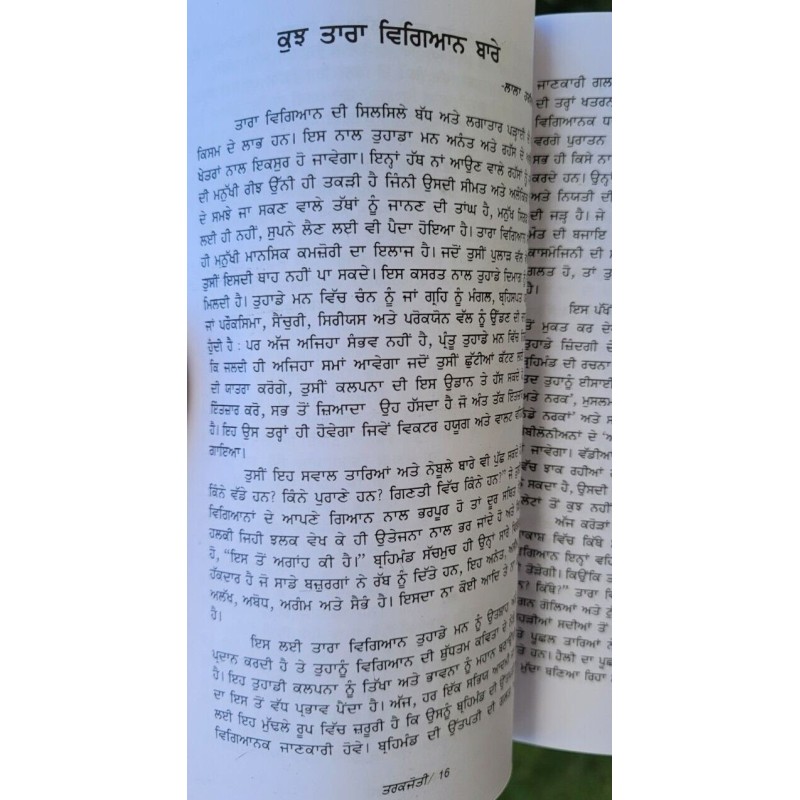 ਕੁਝ ਤਾਰਾ ਵਿਗਿਆਨ ਬਾਰੇ
-ਲਾਲਾ
ਤਾਰਾ ਵਿਗਿਆਨ ਦੀ ਸਿਲਸਿਲੇ ਬੱਧ ਅਤੇ ਲਗਾਤਾਰ ਪੜ੍ਹਾਈ ਦੇ
ਕਿਸਮ ਦੇ ਲਾਭ ਹਨ। ਇਸ ਨਾਲ ਤੁਹਾਡਾ ਮਨ ਅਨੰਤ ਅਤੇ ਰਹੱਸ ਦੇ
ਖੇਤਰਾਂ ਨਾਲ ਇਕਸੁਰ ਹੋ ਜਾਵੇਗਾ। ਇਨ੍ਹਾਂ ਹੱਥ ਨਾਂ ਆਉਣ ਵਾਲੇ ਰਹੱਸਾਂ ਨੂੰ
ਦੀ ਮਨੁੱਖੀ ਰੀਝ ਉੱਨੀ ਹੀ ਤਕੜੀ ਹੈ ਜਿੰਨੀ ਉਸਦੀ ਸੀਮਤ ਅਤੇ
ਦੇ ਸਮਝੇ ਜਾ ਸਕਣ ਵਾਲੇ ਤੱਥਾਂ ਨੂੰ ਜਾਨਣ ਦੀ ਤਾਂਘ ਹੈ, ਮਨੁੱਖ ਸਿਰਫ
ਲਈ ਹੀ ਨਹੀਂ, ਸੁਪਨੇ ਲੈਣ ਲਈ ਵੀ ਪੈਦਾ ਹੋਇਆ ਹੈ। ਤਾਰਾ ਵਿਗਿਆਨ
ਹੀ ਮਨੁੱਖੀ ਮਾਨਸਿਕ ਕਮਜ਼ੋਰੀ ਦਾ ਇਲਾਜ ਹੈ। ਜਦੋਂ ਤੁਸੀਂ ਪੁਲਾੜ ਵੱਲ
ਤੁਸੀਂ ਇਸਦੀ ਥਾਹ ਨਹੀਂ ਪਾ ਸਕਦੇ। ਇਸ ਕਸਰਤ ਨਾਲ ਤੁਹਾਡੇ ਦਿਮਾਗ ਨੂੰ
ਮਿਲਦੀ ਹੈ। ਤੁਹਾਡੇ ਮਨ ਵਿੱਚ ਚੰਨ ਨੂੰ ਜਾਂ ਗ੍ਰਹਿ ਨੂੰ ਮੰਗਲ, ਬ੍ਰਹਿਸਪਤ
ਜਾਂ ਪਰੌਕਸਿਮਾ, ਸੈਂਚੁਰੀ, ਸਿਰੀਯਸ ਅਤੇ ਪਰੋਕਯੋਨ ਵੱਲ ਨੂੰ ਉੱਡਣ ਦੀ
ਹੁੰਦੀ ਹੈ : ਪਰ ਅੱਜ ਅਜਿਹਾ ਸੰਭਵ ਨਹੀਂ ਹੈ, ਪ੍ਰੰਤੂ ਤੁਹਾਡੇ ਮਨ ਵਿੱਚ
ਕਿ ਜਲਦੀ ਹੀ ਅਜਿਹਾ ਸਮਾਂ ਆਵੇਗਾ ਜਦੋਂ ਤੁਸੀਂ ਛੁੱਟੀਆਂ ਕੱਟਣ ਲਈ
ਦੀ ਯਾਤਰਾ ਕਰੋਗੇ, ਤੁਸੀਂ ਕਲਪਨਾ ਦੀ ਇਸ ਉਡਾਨ ਤੇ ਹੱਸ ਸਕਦੇ
ਇੰਤਜ਼ਾਰ ਕਰੋ, ਸਭ ਤੋਂ ਜ਼ਿਆਦਾ ਉਹ ਹੱਸਦਾ ਹੈ ਜੋ ਅੰਤ ਤੱਕ ਇੰਤਜ਼ਾਰ
ਹੈ। ਇਹ ਉਸ ਤਰ੍ਹਾਂ ਹੀ ਹੋਵੇਗਾ ਜਿਵੇਂ ਵਿਕਟਰ ਹਯੂਗ ਅਤੇ ਵਾਲਟ
ਗਾਇਆ।
ਤੁਸੀਂ ਇਹ ਸਵਾਲ ਤਾਰਿਆਂ ਅਤੇ ਨੇਬੂਲੇ ਬਾਰੇ ਵੀ ਪੁੱਛ ਸਕਦੇ
ਕਿੰਨੇ ਵੱਡੇ ਹਨ? ਕਿੰਨੇ ਪੁਰਾਣੇ ਹਨ? ਗਿਣਤੀ ਵਿੱਚ ਕਿੰਨੇ ਹਨ?" ਜੇ
ਵਿਗਿਆਨਾਂ ਦੇ ਆਪਣੇ ਗਿਆਨ ਨਾਲ ਭਰਪੂਰ ਹੋ ਤਾਂ ਦੂਰ ਸਥਿਤ
ਹਲਕੀ ਜਿਹੀ ਝਲਕ ਵੇਖ ਕੇ ਹੀ ਉਤੇਜਨਾ ਨਾਲ ਭਰ ਜਾਂਦੇ ਹੋ ਅਤੇ
ਹੋ, "ਇਸ ਤੋਂ ਅਗਾਂਹ ਕੀ ਹੈ।" ਬ੍ਰਹਿਮੰਡ ਸੱਚਮੁਚ ਹੀ ਉਨ੍ਹਾਂ ਸਾਰੇ
ਹੱਕਦਾਰ ਹੈ ਜੋ ਸਾਡੇ ਬਜ਼ੁਰਗਾਂ ਨੇ ਰੱਬ ਨੂੰ ਦਿੱਤੇ ਹਨ, ਇਹ ਅਨੰਤ,
ਅਲੱਖ, ਅਬੋਧ, ਅਗੰਮ ਅਤੇ ਸੈਭੰ ਹੈ। ਇਸਦਾ ਨਾ ਕੋਈ ਆਦਿ ਤੇ ਨਾ
ਹੈ।
ਇਸ ਲਈ ਤਾਰਾ ਵਿਗਿਆਨ ਤੁਹਾਡੇ ਮਨ ਨੂੰ ਉਤਸ਼ਾਹ
ਪ੍ਰਦਾਨ ਕਰਦੀ ਹੈ ਤੇ ਤੁਹਾਨੂੰ ਵਿਗਿਆਨ ਦੀ ਸ਼ੁੱਧਤਮ ਕਵਿਤਾ ਦੇ
ਹੈ। ਇਹ ਤੁਹਾਡੀ ਕਲਪਨਾ ਨੂੰ ਤਿੱਖਾ ਅਤੇ ਭਾਵਨਾ ਨੂੰ ਮਹਾਨ ਬਣਾਉਂਦੀ
ਦਾ ਇਸ ਤੋਂ ਵੱਧ ਪ੍ਰਭਾਵ ਪੈਂਦਾ ਹੈ। ਅੱਜ, ਹਰ ਇੱਕ ਸਭਿਯ ਆਦਮੀ
ਲਈ ਇਹ ਮੁੱਢਲੇ ਰੂਪ ਵਿੱਚ ਜ਼ਰੂਰੀ ਹੈ ਕਿ ਉਸਨੂੰ ਬ੍ਰਹਿਮੰਡ ਦੀ
ਵਿਗਿਆਨਕ ਜਾਣਕਾਰੀ ਹੋਵੇ। ਬ੍ਰਹਿਮੰਡ ਦੀ ਉੱਤਪਤੀ ਦੀ
ਤਰਕਜੋਤੀ/ 16
ਜਾਣਕਾਰੀ ਗਲ
ਦੀ ਤਰ੍ਹਾਂ ਖਤਰਨ
ਵਿਗਿਆਨਕ ਧ
ਵਰਗੇ ਪੁਰਾਤਨ
ਸਭ ਹੀ ਕਿਸੇ ਨਾ
ਕਰਦੇ ਹਨ। ਉਨ੍ਹਾਂ
ਅਤੇ ਨਿਯਤੀ ਦੀ
ਦੀ ਜੜ੍ਹ ਹੈ। ਜੇ
ਮੌਤ ਦੀ ਬਜਾਇ
ਕਾਸਮੋਜਿਨੀ ਦੀ ਸ
ਗਲਤ ਹੋ, ਤਾਂ ਤੁ
ਹੈ।
ਇਸ ਪੱਖੋਂ
ਤੋਂ ਮੁਕਤ ਕਰ ਦੇ
ਤੁਹਾਡੇ ਜ਼ਿੰਦਗੀ ਦੇ
ਬ੍ਰਹਿਮੰਡ ਦੀ ਰਚਨਾ
ਤਦ ਤੁਹਾਨੂੰ ਈਸਾਈ
ਅਤੇ ਨਰਕ', ਮੁਸਲਮ
ਡੇ ਨਰਕਾਂ' ਅਤੇ ਸ
ਬੀਲੋਨੀਅਨਾਂ ਦੇ 'ਅ
ਜਾਵੇਗੀ। ਵੱਡੀਆਂ
ਵਿੱਚ ਝਾਕ ਰਹੀਆਂ
ਸਕਦਾ ਹੈ, ਉਸਦੀ
ਤੋਂ ਕੁਝ ਨਹੀਂ
ਅੱਜ ਕਰੋੜਾਂ
ਵਿੱਚ ਕਿੱਥੇ
ਇਨ੍ਹਾਂ ਵਹਿ
ਕਿਉਂਕਿ ਤ
ਕਿੱਥੇ?" ਤਾਰਾ ਵਿ
ਗੋਲਿਆਂ ਅਤੇ ਨੂੰ
ਸਦੀਆਂ ਤੋਂ
ਪੂਛਲ ਤਾਰਿਆਂ ਨੇ
ਹਨ। ਹੈਲੀ ਦਾ ਪੂਛ
ਮੁੱਦਾ ਬਣਿਆ ਰਿਹਾ